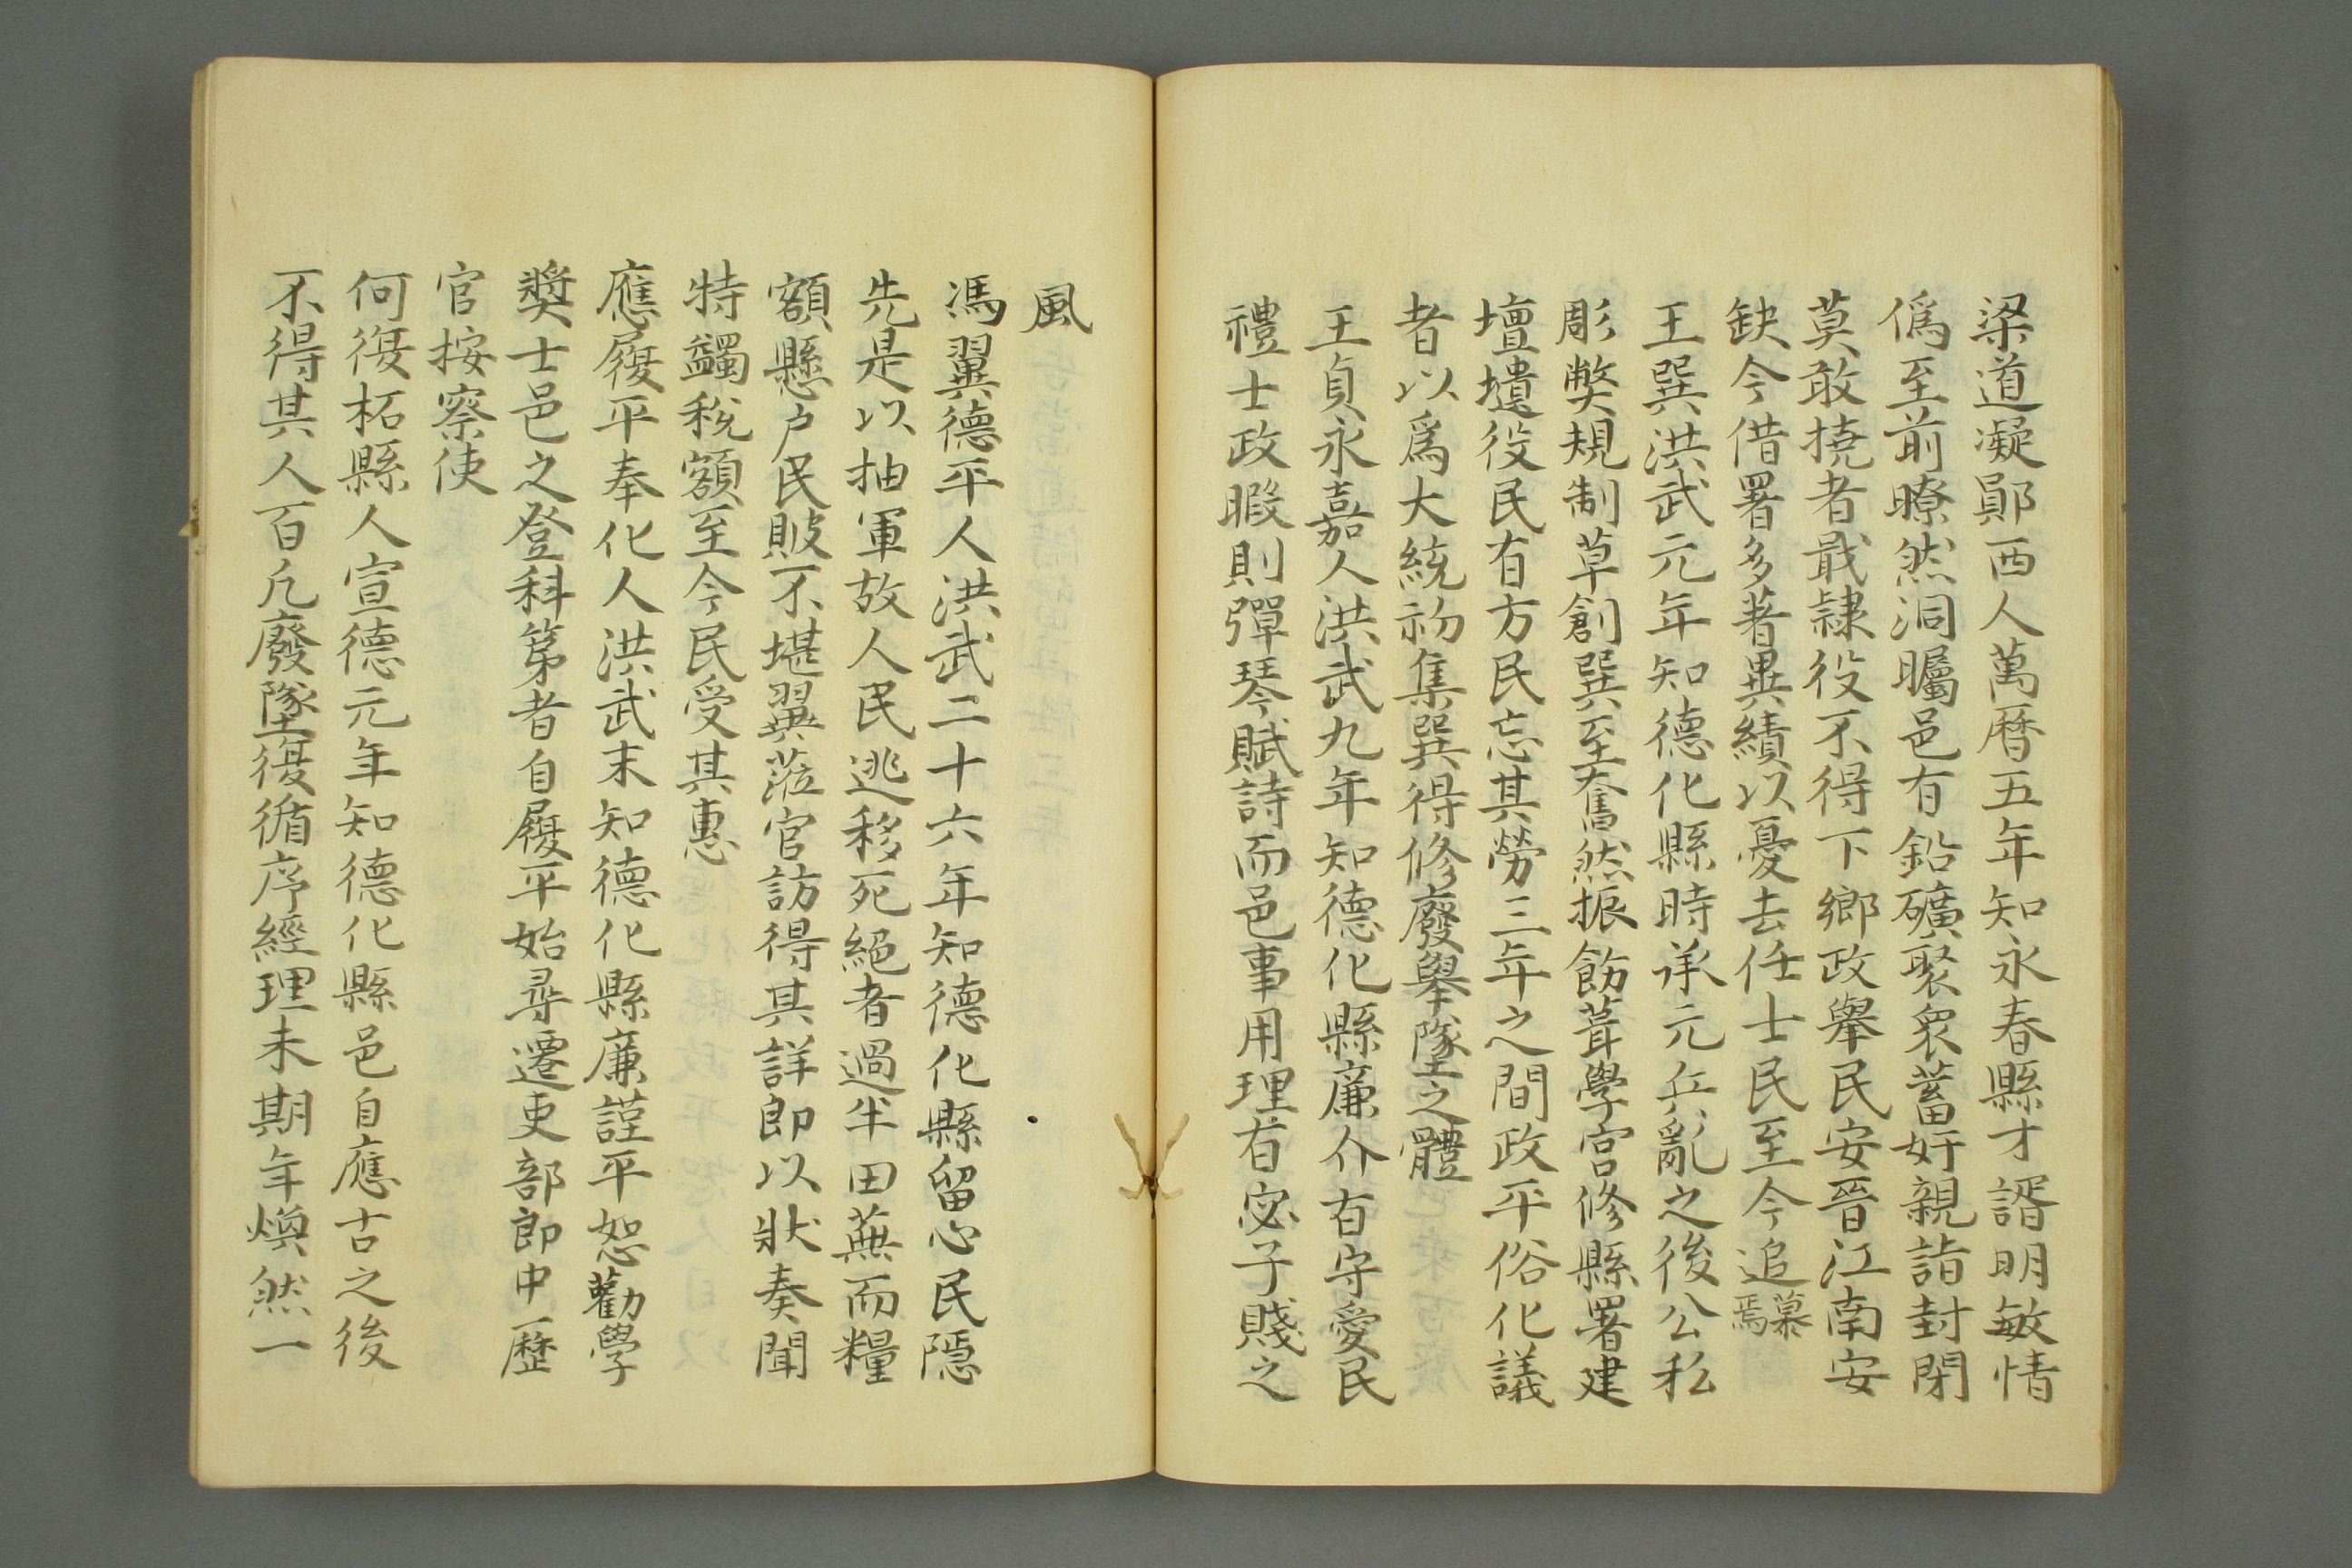 梁道凝鄖西人萬曆五年知永春縣才諝明敏情
僞至前瞭然洞矚邑有鉛礦聚衆蓄奸親詣封閉
莫敢撓者戢隷役不得下鄉政舉民安晉江南安
缺令借署多著異績以憂去任士民至今追慕焉
王巽洪武元年知德化縣時承元兵亂之後公私
彫弊規制草創巽至奮然振飭葺學宫修縣署建
壇壝役民有方民忘其勞三年之間政平俗化議
者以爲大統初集巽得修廢舉墜之體
王貞永嘉人洪武九年知德化縣廉介有守愛民
禮士政暇則彈琴賦詩而邑事用理有宓子賤之
風
馮翼德平人洪武二十六年知德化縣留心民隱
先是以抽軍故人民逃移死絕者過半田蕪而糧
額懸户民賠不堪翼蒞官訪得其詳即以狀奏聞
特蠲税額至今民受其惠
應履平奉化人洪武末知德化縣廉謹平恕勸學
奬士邑之登科第者自履平始尋遷吏部郎中歷
官按察使
何復柘縣人宣德元年知德化縣邑自應古之後
不得其人百凡廢墜復循序經理未期年煥然一